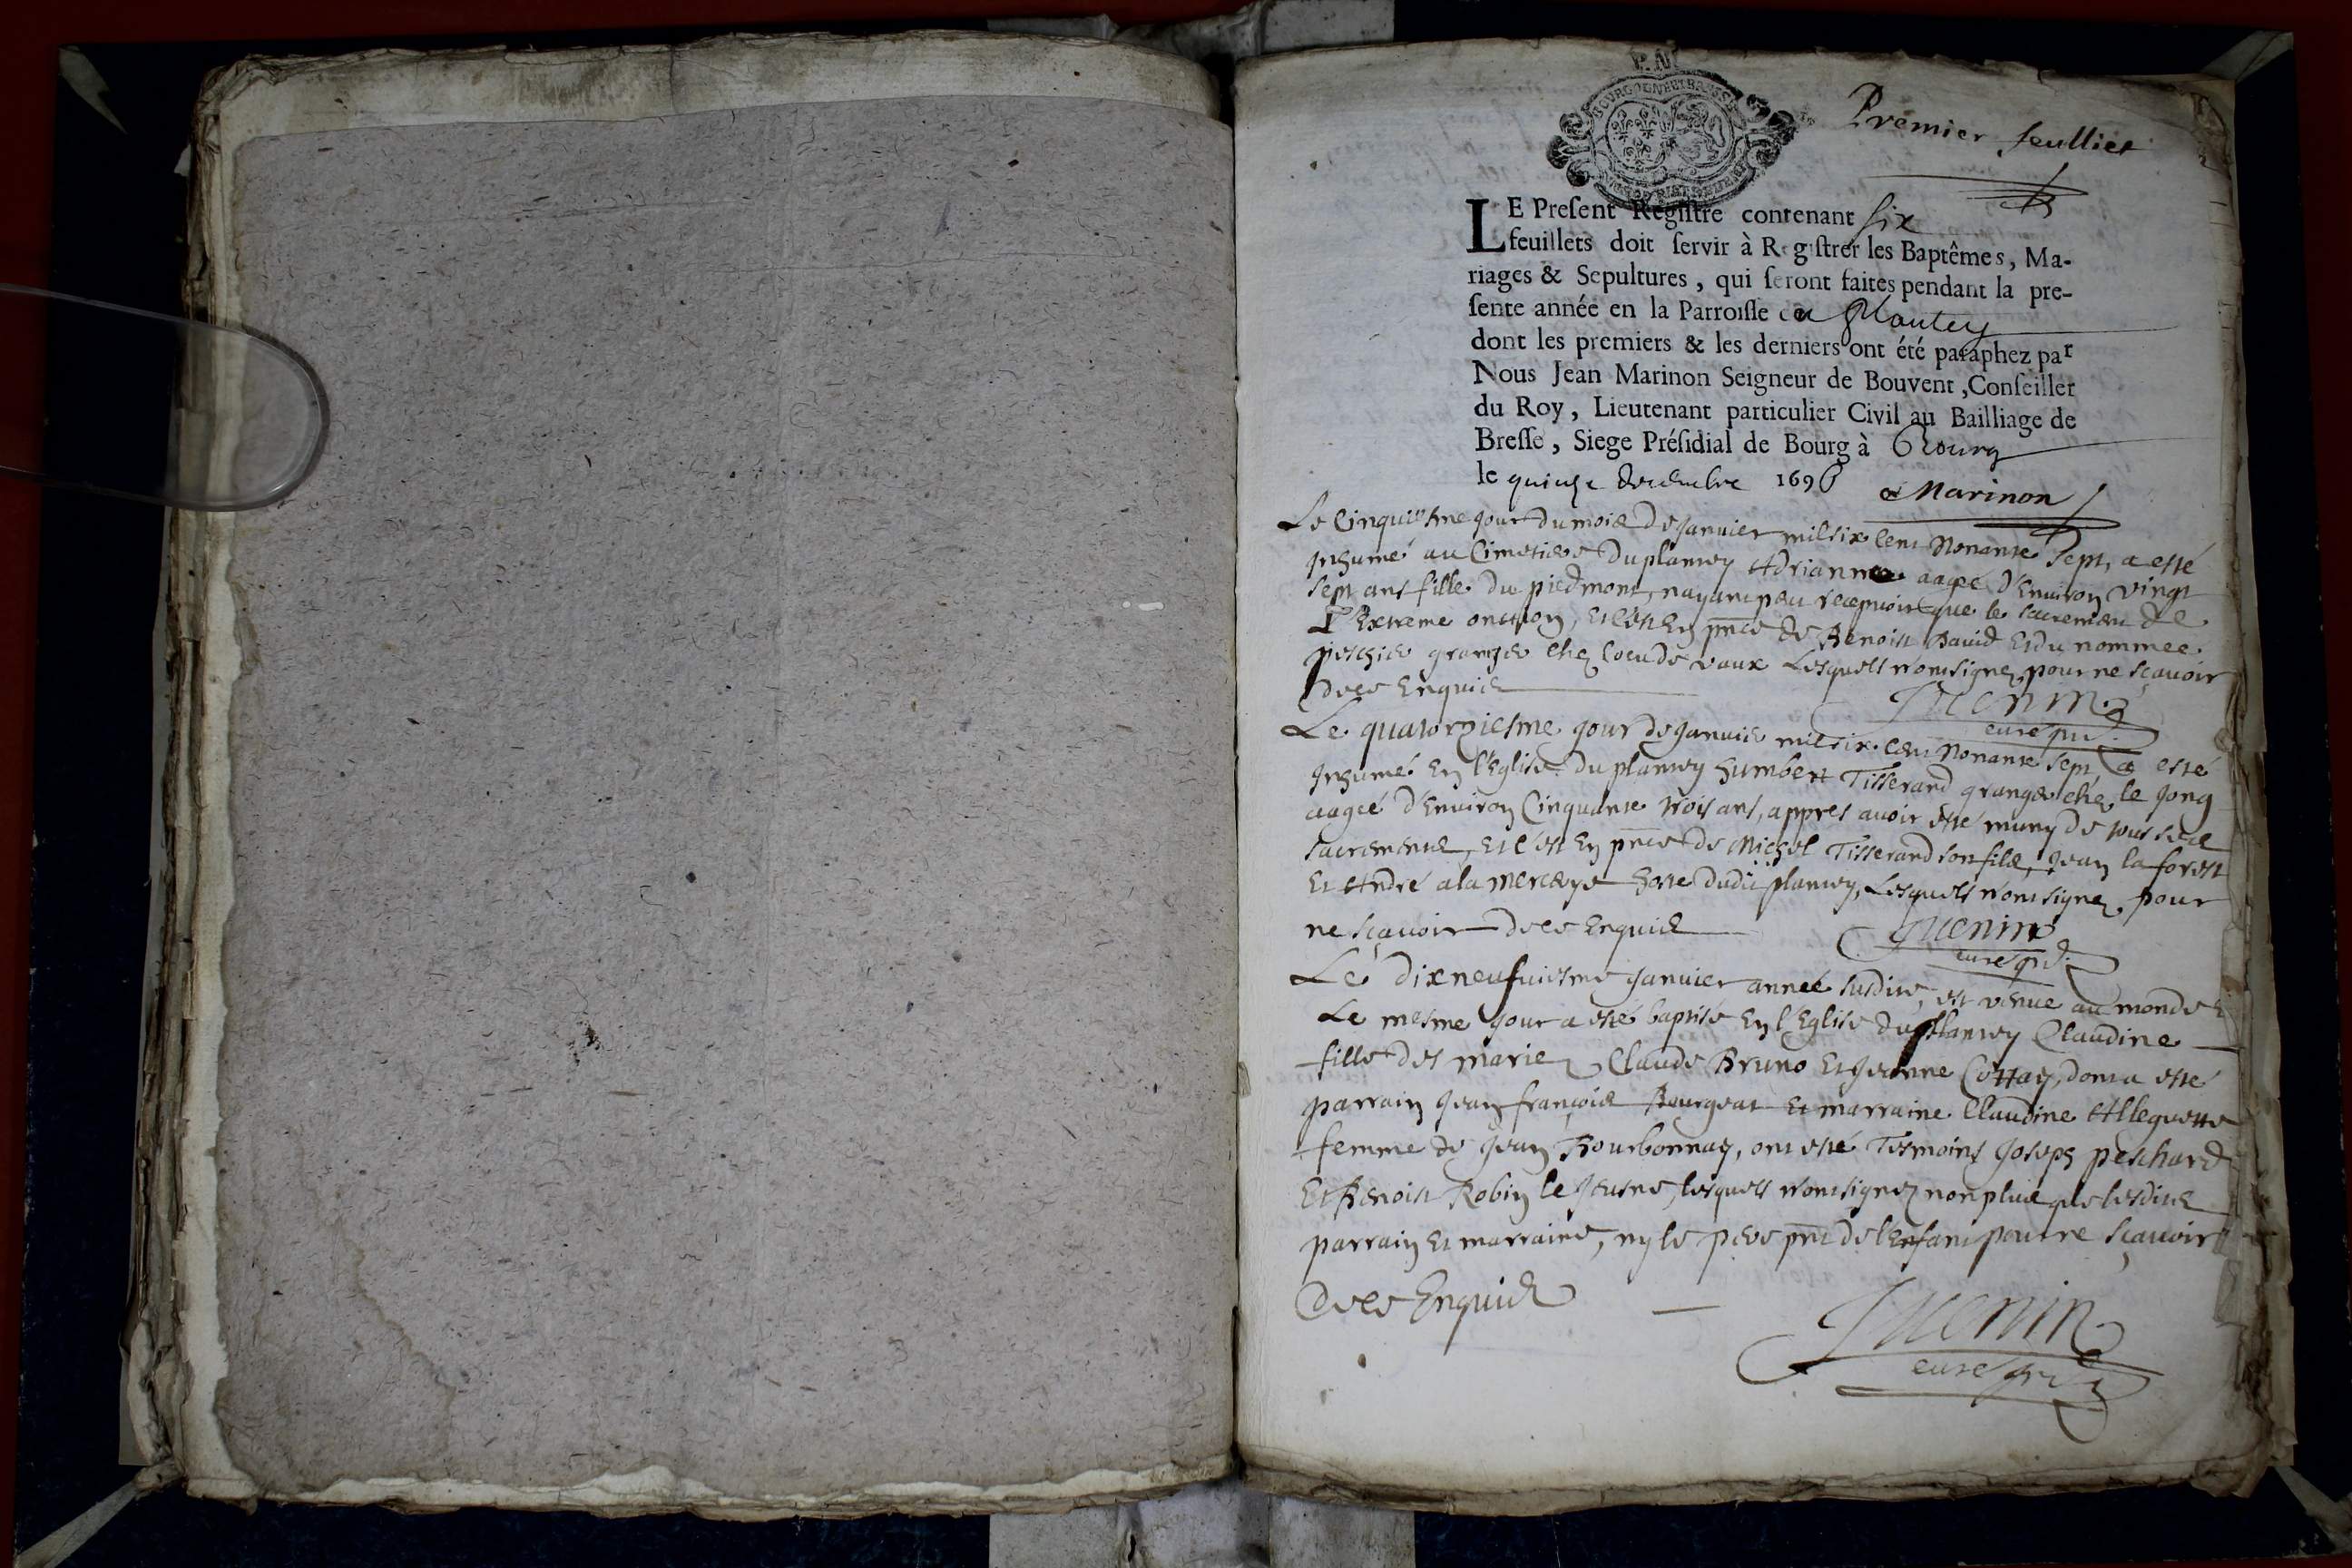 Premier feullier
LE Present Registre contenant six
feuillets doit servir à Registrer les Baptêmes, Ma-
riages & Sepultures, qui seront faites pendant la pre-
sente année en la Parroisse du Plantey
dont les premiers & les derniers ont été paraphez par
Nous Jean Marinon Seigneur de Bouvent, Conseiller
du Roy, Lieutenant particulier Civil au Bailliage de
Bresse, Siege Présidial de Bourg à Bourg
le quinze decembre 1696 Marinon
Le Cinquiesme jour du mois de Januier mil six cent Nonante Sept, a esté
Inhumé au Cimetiere du plantey Adrianne aagée d'Enuiron vingt
sept ans fille du piedmont, nayant peu recepuoir que le sacrement de
l'Extreme onction, Et c'est En pnce de Benoist Dauid Et du nommee
granger chez Coeudevaux Lesquels n'ont signez pour ne sçauoir
de ce Enquis
Juenin
curé pnt
Le quatorziesme jour de Januier mil six cent Nonante Sept, a esté
Inhumé En l'Eglise du plantey humbert Tisserand granger chez le Jong
aagée d'Enuiron Cinquante trois ans, appres auoir esté muny de tous ses
sacrements, Et c'est En pnce de Michel Tisserand son fils, Jean la forest
Et André a la mercerye hoste dudit plantey, Lesquels n'ont signez pour
ne sçauoir de ce Enquis
Juenin
curé pnt
Le dixneufuiesme Januier année susdite, est venue au monde &
Le mesme jour a esté baptisé En l'Eglise du plantey Claudine
fille des mariez Claude Bruno Et Jeanne Cottay, dont a esté
parrain Jean françois Bourgeat Et marraine Claudine Alleguette
femme de Jean Bourbonnay, ont esté Tesmoins Joseph peschard
Et Benoist Robin le Jeusne, lesquels n'ont signez non plus que lesdits
parrain Et marraine, ny le pere pnt de l'Enfant pour ne sçauoir
de ce Enquis
Juenin
curé pnt